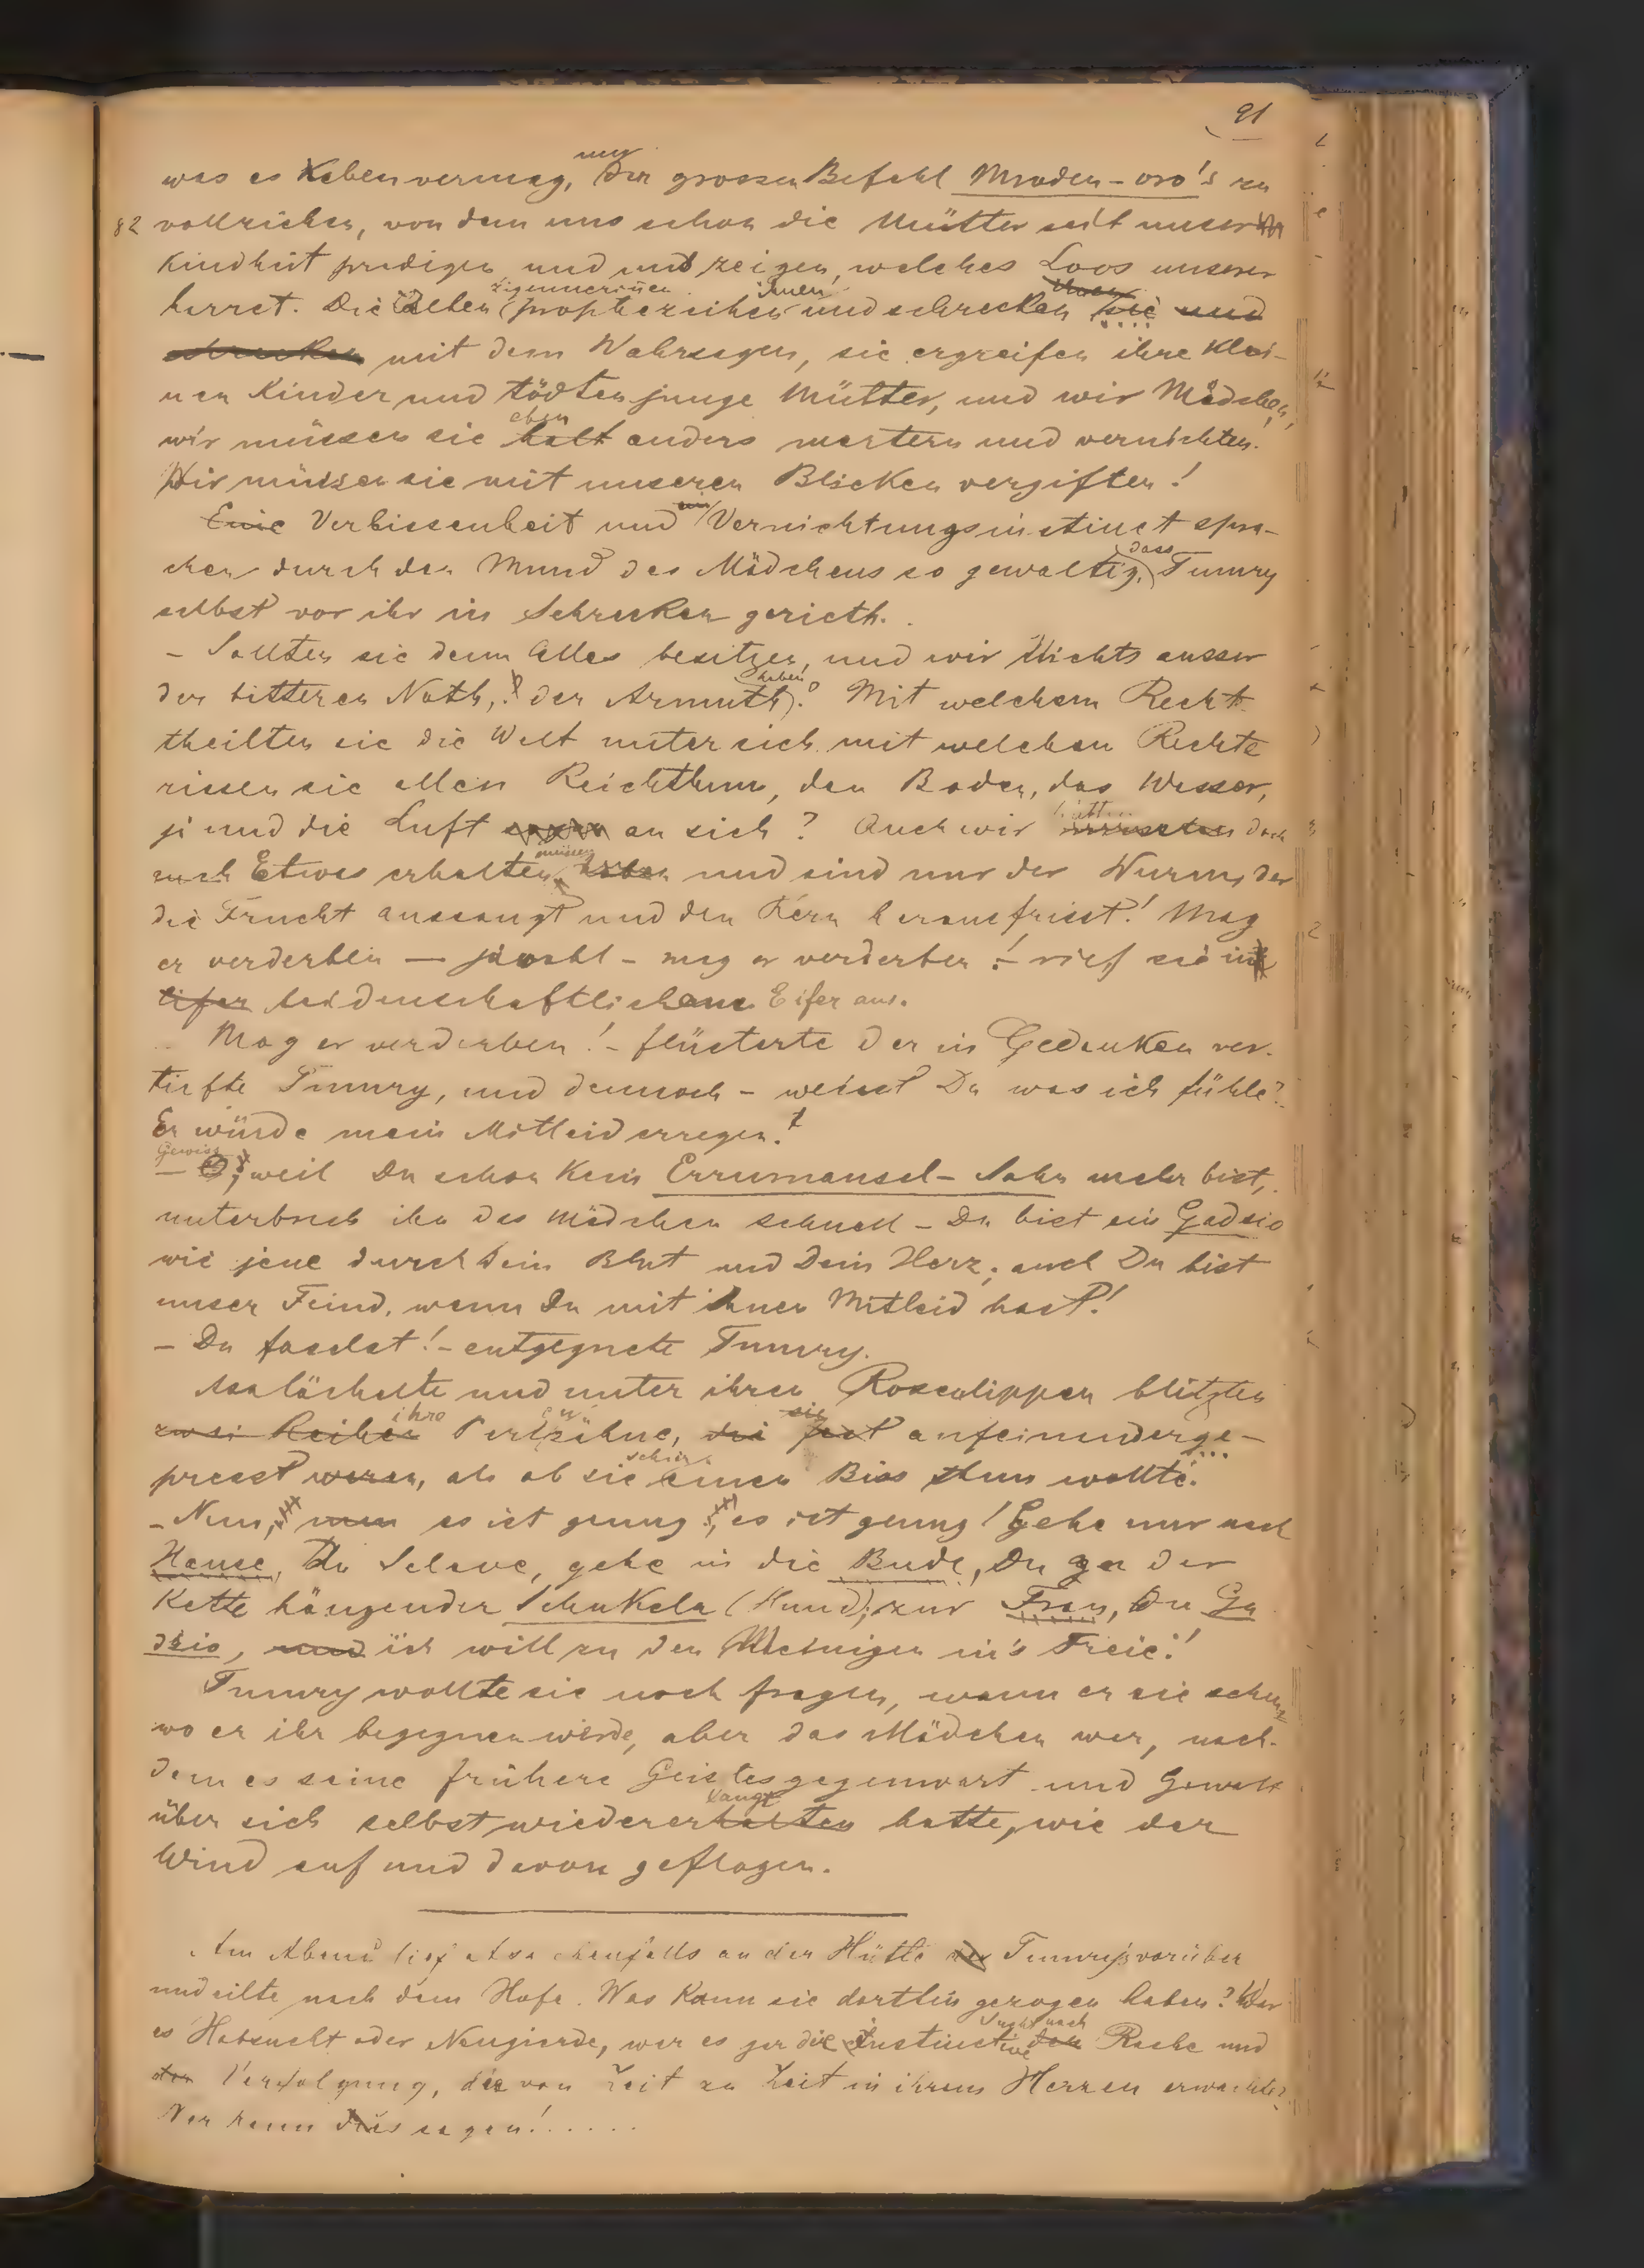 91
was es Xeben vermag, um den grossen Befehl Mroden-oro's zu
82 vollziehen, von dem uns schon die Mütter seit unserer
Kindheit predigen und uns zeigen, welches Loos unserer
harret. Die alten Zigeunerinen prophezeihen ihnen und schrecken sie und
schrecken mit dem Wahrsagen, sie ergreifen ihre klei-
nen Kinder und tödten junge Mütter, und wir Mädchen,
wir müssen sie halt eben anders martern und vernichten.
Wir müssen sie mit unseren Blicken vergiften!
Eine Verbissenheit und ein Vernichtungsinstinct spra-
chen durch den Mund des Mädchens so gewaltig, dass Tumry
selbst vor ihr in Schrecken gerieth.
- Sollten sie denn Alles besitzen, und wir Nichts ausser
der bitteren Noth, der Armuth haben? Mit welchem Recht
theilten sie die Welt unter sich mit welchem Rechte
rissen sie allen Reichthum, den Boden, das Wasser,
ja und die Luft an sich? Auch wir hätten mussten doch
auch Etwas erhalten müssen haben und sind nur der Wurm, der
die Frucht aussaugt und den Kern herausfrisst! Mag
er verderben — jawohl - mag er verderben! - rief sie in
Eifer leidenschaftlichem Eifer aus.
- Mag er verderben! - flüsterte der in Gedanken ver-
tiefte Tumry, und dennoch - weisst Du was ich fühle?
Er würde mein Mitleid erregen!
- O, Gewiss weil Du schon kein Errumansel-Sohn mehr bist,
unterbrach ihn das Mädchen schnell - Du bist ein Gadsio
wie jene durch Dein Blut und Dein Herz; auch Du bist
unser Feind, wenn Du mit ihnen Mitleid hast!
- Du faselst! - entgegnete Tumry.
Asa lächelte und unter ihren Rosenlippen blitzten
zwei Reihen ihre Perlzähne, die sie fest aufeinanderge-
presst waren, als ob sie schier einen Biss thun wollte.
- Nun, nun es ist genug, es ist genug! Gehe nur nach
Hause, Du Sclave, gehe in die Bude, Du an der
Kette hängender Schukela (Hund); zur Frau, Du Ga
dsio, und ich will zu den Meinigen in's Freie!
Tumry wollte sie noch fragen, wann er sie sehen,
wo er ihr begegnen würde, aber das Mädchen war, nach-
dem es seine frühere Geistesgegenwart und Gewalt
über sich selbst wiedererhalten langt hatte, wie der
Wind auf und davon geflogen.
Am Abend lief Asa ebenfalls an der Hütte Tumry's vorüber
und eilte nach dem Hofe. Was kann sie dorthin gezogen haben? War
es Habsucht oder Neugierde, war es gar die instinctive Sucht nach der Rache und
der Verfolgung, die von Zeit zu Zeit in ihrem Herzen erwachte?
Wer kann dies sagen!......